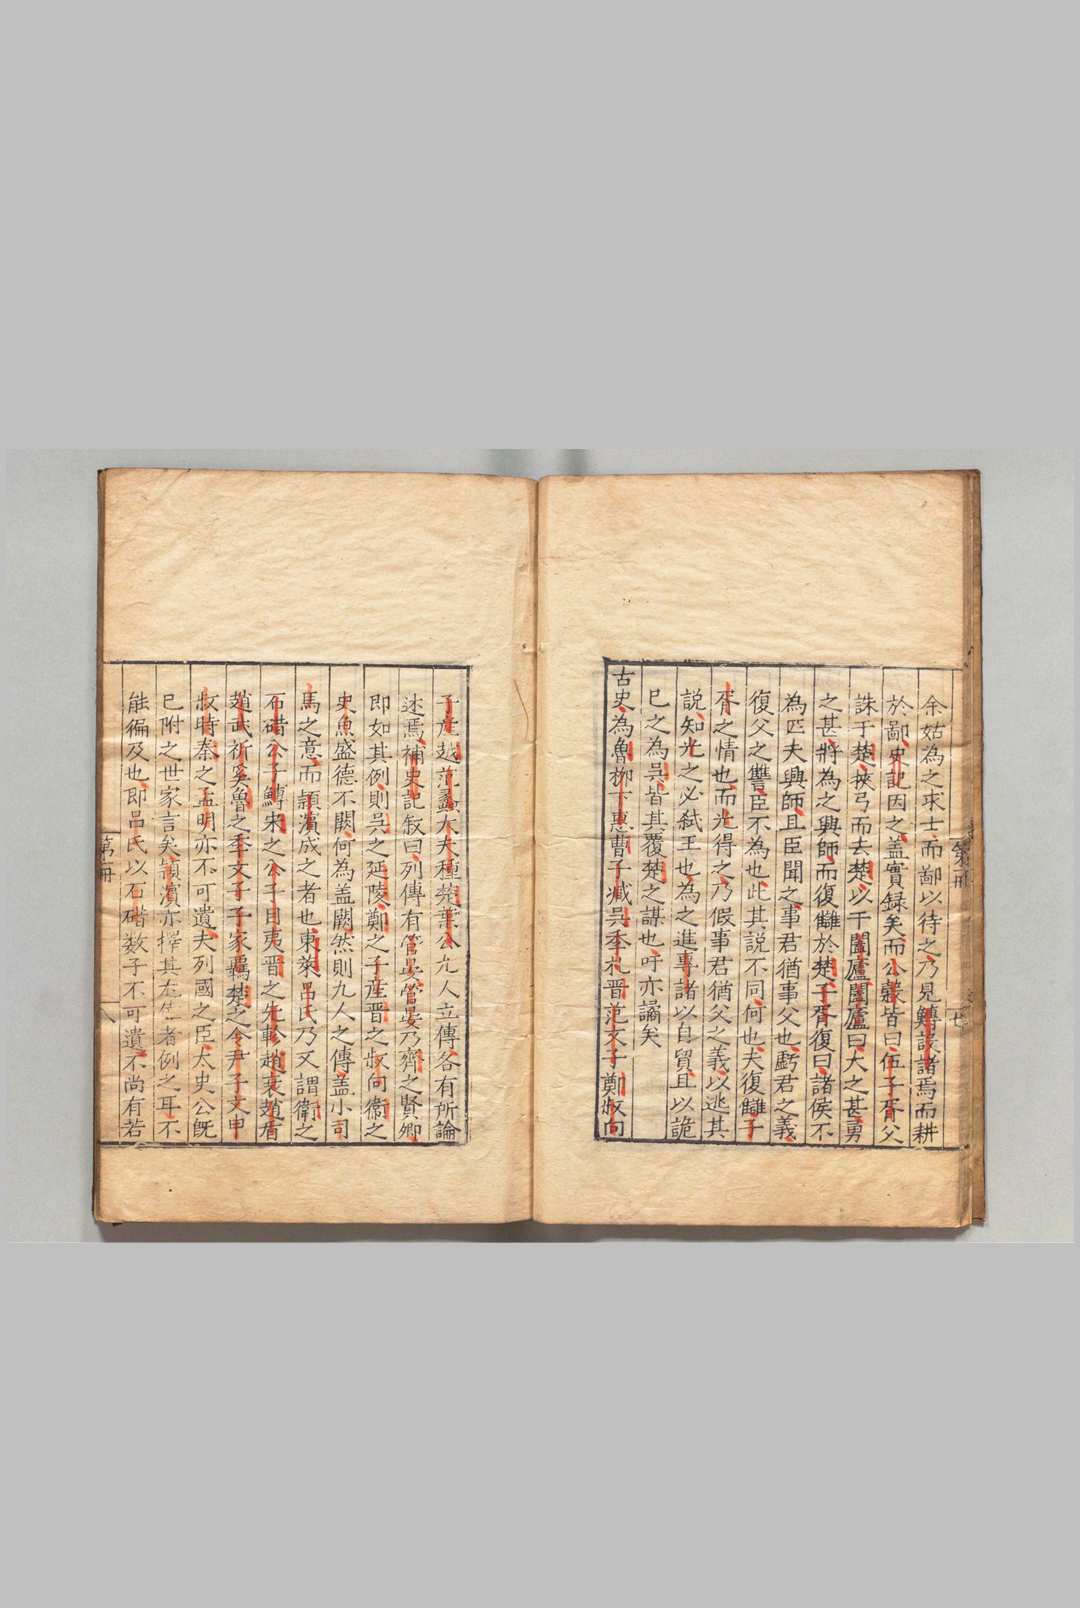 余姑為之求士而鄙以待之乃見鱄設諸焉而耕
於鄙史記因之盖實録矣而公羲皆曰伍子胥父
誅于楚挾弓而去楚以干闔廬闔廬曰大之甚勇
之甚將為之興師而復讎於楚子胥復曰諸侯不
為匹夫興師且臣聞之事君猶事父也虧君之義
復父之讐臣不為也此其說不同何也夫復讎子
胥之情也而光得之乃假事君猶父之義以逃其
說知光之必弑王也為之進專諸以自貿且以詭
已之為吳皆其覆楚之謀也吁亦譎矣
古史為魯柳下惠曹子臧吳季札晋范文子鄭叔向
子産越范蠡大夫種楚葉公九人立傳各有所論
述焉補史記叙曰列傳有管晏管晏乃齊之賢卿
即如其例則吳之延陵鄭之子産晋之叔向衞之
史魚盛德不闕何為盖闕然則九人之傳盖小司
馬之意而頴濵成之者也東萊吕氏乃又謂衞之
石碏公子鱄宋之公子目夷晋之先軫趙衰趙盾
趙武祈奚魯之季文子子家羈楚之令尹子文申
叔時秦之孟明亦不可遺夫列國之臣太史公旣
已附之世家言矣頴濵亦擇其尤生者例之耳不
能徧及也即吕氏以石碏数子不可遺不尚有若
第冊
七
第冊
八